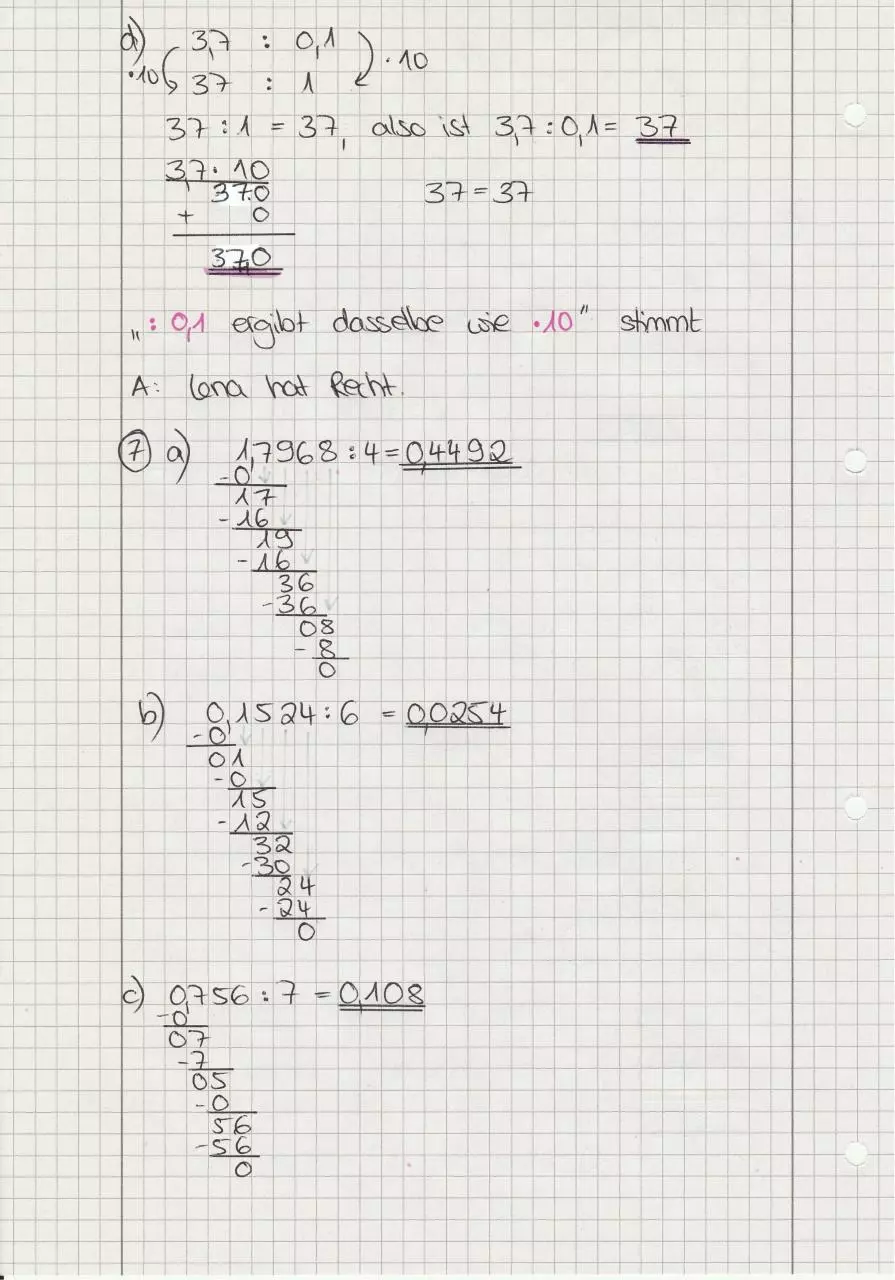 d) 3,7 : 0,1
·10 37 : 1 ·10
37 : 1 = 37, also ist 3,7 : 0,1 = 37
3,7 · 10
37,0 37 = 37
+ 0
37,0
„: 0,1 ergibt dasselbe wie ·10" stimmt
A: Lena hat Recht.
7 a) 1,7968 : 4 = 0,4492
- 0
17
- 16
19
- 16
36
- 36
08
- 8
0
b) 0,1524 : 6 = 0,0254
- 0
01
- 0
15
- 12
32
- 30
24
- 24
0
c) 0,756 : 7 = 0,108
- 0
07
- 7
05
- 0
56
- 56
0